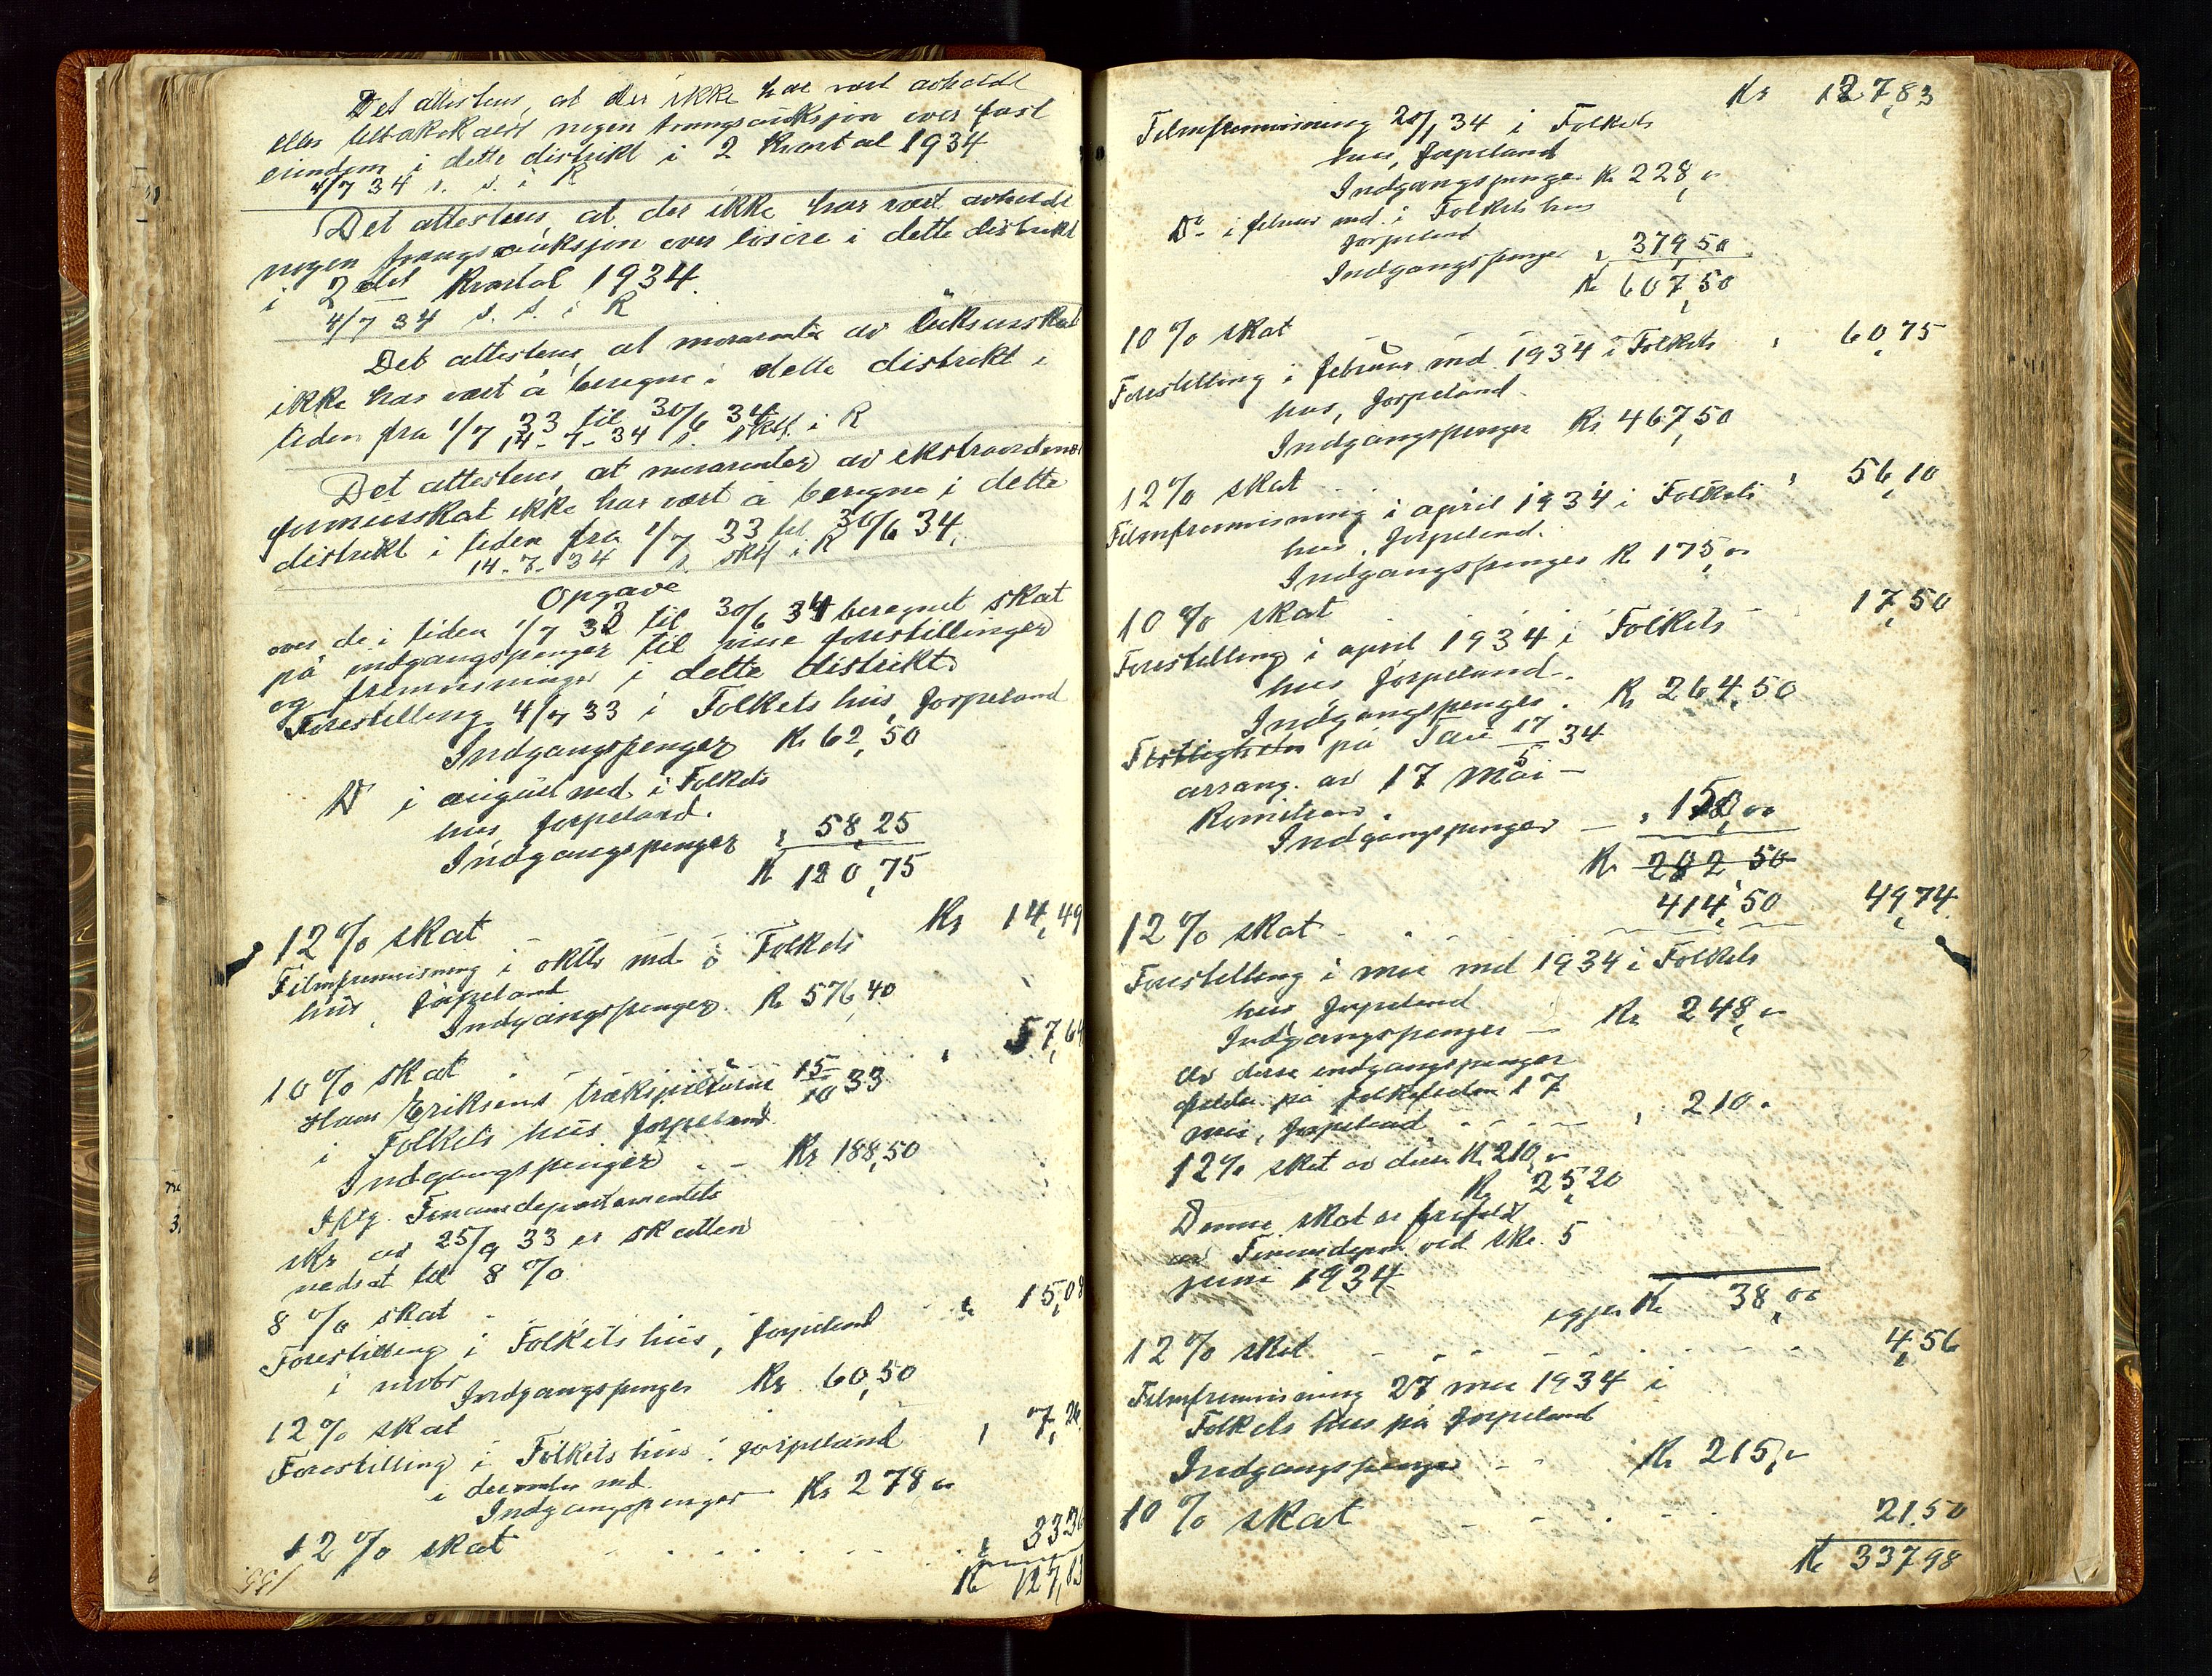 Det attesteres, at der ikke har vært avholdt
eller tilbakekaldt nogen tvangsauksjon over fast
eiendom i dette distrikt i 2 kvartal 1934
4/7 34 s. s. i R
Det attesteres, at der ikke har vært avholdt
nogen tvangsauksjon over løsøre i dette distrikt
i 2det kvartal 1934.
4/7 34 s. s. i R
Det attesteres, at morarenter av luksusskat
ikke har vært å beregne i dette distrikt i
tiden fra 1/7 33 til 30/6 34.
14-7-34 s. sktf. i R
Det attesteres, at morarenter av ekstraordinær
formuesskat ikke har vært å beregne i dette
distrikt i tiden fra 1/7 33 til 30/6 34.
14-7-34 s. sktf i R
Opgave
over de i tiden 1/7 33 til 30/6 34 beregnet skat
på indgangspenger til hine forestillinger
og fremvisninger i dette distrikt.
Forestilling 4/7 33 i Folkets hus, Jørpeland
Indgangspenger Kr 62,50
Do i august md. i Folkets
hus Jørpeland.
Indgangspenger " 58,25
Kr 120,75
12 % skat Kr 14,49
Filmfremvisning i oktbr md. i Folkets
hus, Jørpeland
Indgangspenger. Kr 576,40
10 % skat " 57,64
Hans Eriksens trækspilturné 15/10 33
i Folkets hus Jørpeland
Indgangspenger - - Kr 188,50
Iflg. Finansdepartementets
skr av 25/9 33 er skatten
nedsat til 8 %
8 % skat - " 15,08
Forestilling i Folkets hus, Jørpeland
i novbr
Indgangspenger Kr 60,50
12 % skat " 7,26
Forestilling i Folkets hus, Jørpeland
i desember md.
Indgangspenger Kr 278,00
12 % skat " 33,36
Kr 127,83
Kr 127,83
Filmfremvisning 20/1 34 i Folkets
hus, Jørpeland
Indgangspenger Kr 228,00
Do i februar md. i Folkets hus
Jørpeland
Indgangspenger " 379,50
Kr 607,50
10 % skat " 60,75
Forestilling i februar md 1934 i Folkets
hus, Jørpeland.
Indgangspenger Kr 467,50
12 % skat " 56,10
Filmfremvisning i april 1934 i Folkets
hus, Jørpeland.
Indgangspenger Kr 175,00
10 % skat 17,50
Forestilling i april 1934 i Folkets
hus Jørpeland.
Indgangspenger. Kr 264,50
Festligheten på Tau 17/5 34
arrang. av 17 mai -
Komiteen.
Indgangspenger - " 150,00
Kr 282 50
414,50
12 % skat - 49,74
Forestilling i mai md 1934 i Folkets
hus Jørpeland
Indgangspenger - Kr 248,00
Av disse indgangspenger
falder på folkefesten 17
mai, Jørpeland " 210.
12% skat av disse Kr 210,00
Kr 25,20
Denne skat er frafaldt
av Finansdepart. ved skr. 5
juni 1934
igjen Kr 38,00
12 % skat 4,56
Filmfremvisning 27 mai 1934 i
Folkets hus på Jørpeland
Indgangspenger - - Kr 215,00
10 % skat 21.50
Kr 337,98